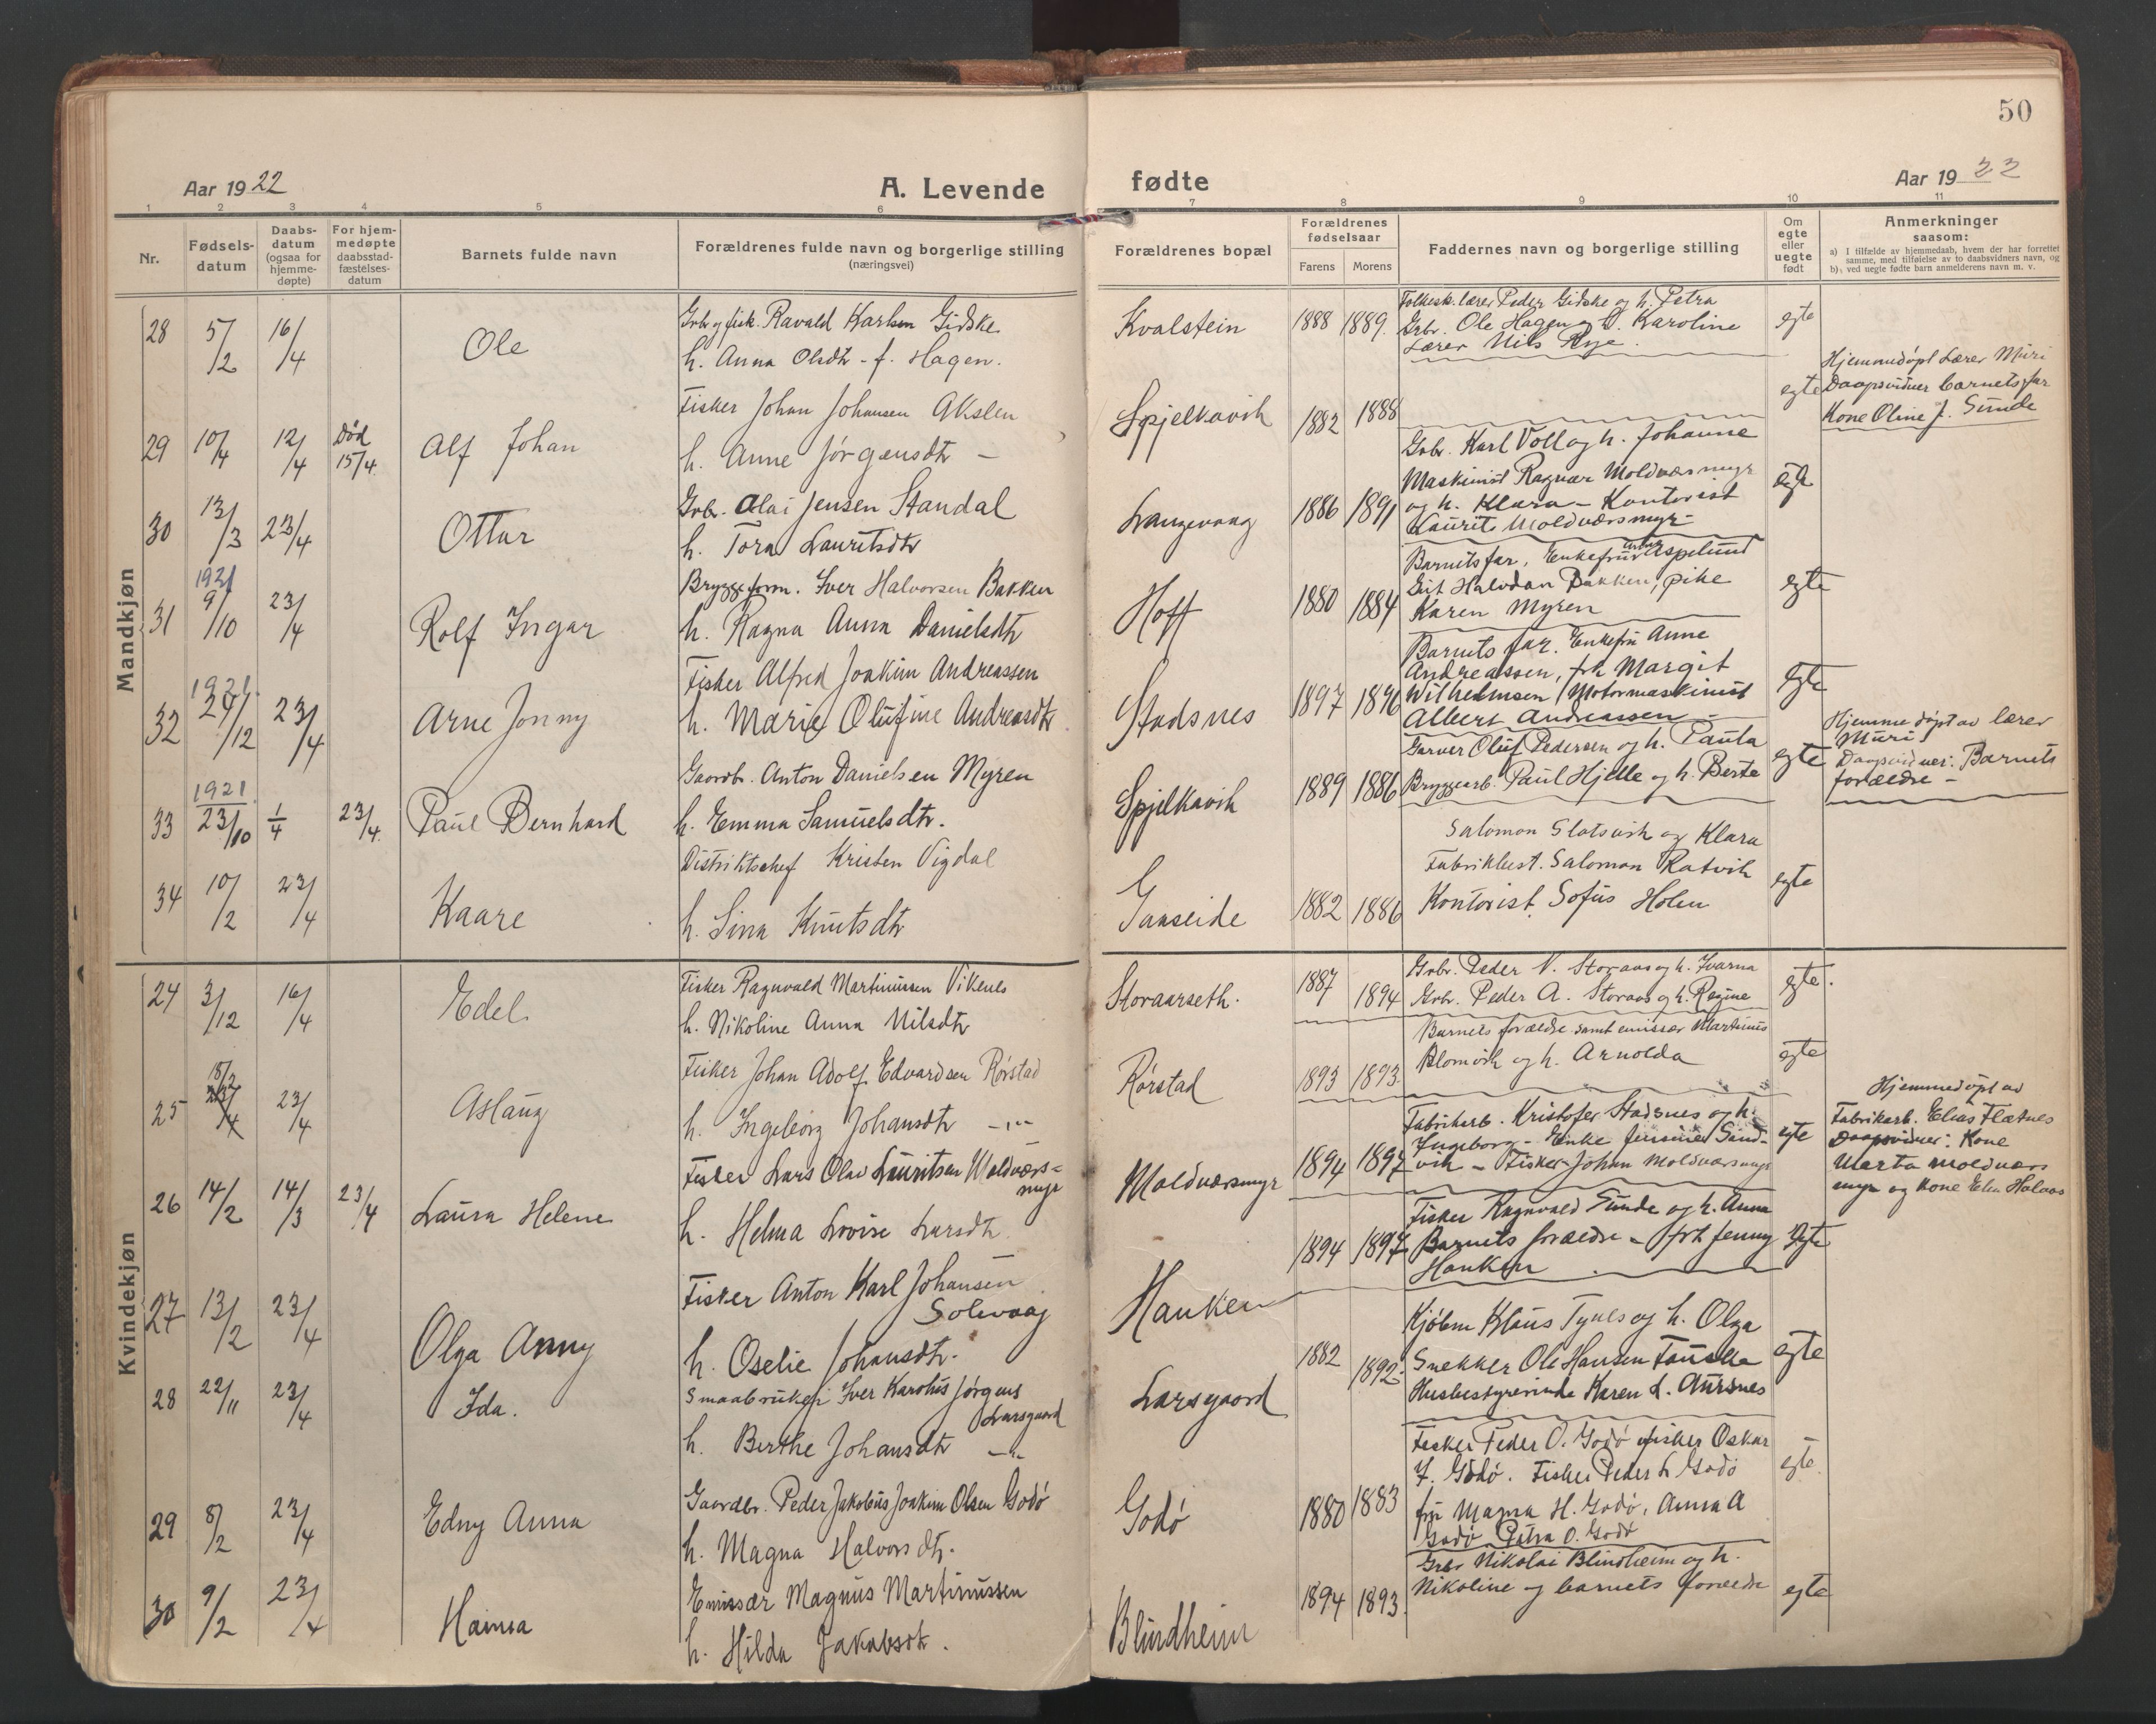 50
Aar 1922
A. Levende
fødte
Aar 1922
1 2 3 4 5 6 7 8 9 10 11
Nr.
Fødsels-
datum
Daabs-
datum
(ogsaa for
hjemme-
døpte)
For hjem-
medøpte
daabsstad-
fæstelses-
datum
Barnets fulde navn
Forældrenes fulde navn og borgerlige stilling
(næringsvei)
Forældrenes bopæl
Forældrenes
fødselsaar
Farens Morens
Faddernes navn og borgerlige stilling
Om
egte
eller
uegte
født
Anmerkninger
saasom:
a) I tilfælde av hjemmedaab, hvem der har forrettet
samme, med tilføielse av to daabsvidners navn, og
b) ved uegte fødte barn anmelderens navn m. v.
Mandkjøn
28 5/2 16/4 Ole
Grbr og fisk. Ravald Karlsen Gidske
h. Anna Olsdtr - f. Hagen.
Kvalstein 1888 1889.
Folkesk.lærer Peder Gidske og h. Petra
Grbr. Ole Hagen og h. Karoline
Lærer Nils Rye.
egte
29 10/4 12/4 Død 15/4. Alf Johan
Fisker Johan Johansen Akslen
h. Anne Jørgensdtr -
Spjelkavik 1882 1888
egte
Hjemmedøpt Lærer Muri
Daapsvidner barnets far
Kone Oline J. Sunde
30 13/3 23/4 Ottar
Grbr. Olai Jensen Standal
h. Tora Lauritsdtr
Langevaag 1886 1891
Grbr. Karl Voll og h. Johanne
Maskinist Ragnar Moldværsmyr
og h. Klara - Kontorist
Laurits Moldværsmyr -
egte
31 1921 9/10 23/4 Rolf Ingar
Bryggeform. Iver Halvorsen Bakken
h. Ragna Anna Danielsdtr
Hoff 1880 1884
Barnets far, Enkefru Aspelund
Halvdan Bakken, pike
Karen Myren
egte
32 1921. 24/12 23/4 Arne Jonny
Fisker Alfred Joakim Andreassen
h. Marie Olufine Andreasdtr
Stadsnes 1897 1896
Barnets far. Enkefru Anne
Andreassen, frk Margit
Wilhelmsen, Motormaskinist
Albert Andreassen -
egte
33 1921. 23/10 1/4 23/4. Paul Bernhard
Gaardbr. Anton Danielsen Myren
h. Emma Samuelsdtr.
Spjelkavik 1889 1886
Garver Oluf Pedersen og h. Paula
Bryggearb. Paul Hjelle og h. Berte
egte
Hjemmedøpt av lærer
Muri
Daapsvidner: Barnets
forældre -
34 10/2 23/4 Kaare
Distriktschef Kristen Vigdal
h. Sina Knutsdtr
Gaaseide 1882 1886
Salomon Slotsvik og Klara
Fabrikbest. Salomon Ratvik
Kontorist Sofus Holen
egte
Kvindekjøn
24 3/12 16/4 Edel
Fisker Ragnvald Martinussen Vikenes
h. Nikoline Anna Nilsdtr
Storaarseth. 1887 1894
Grbr. Peder N. Storaas og h. Ivarna
Grbr. Peder A. Storaas og h. Regine
egte.
25 18/2 23/4 Aslaug
Fisker Johan Adolf Edvardsen Rørstad
h. Ingeborg Johansdtr -"-
Rørstad 1893 1893.
Barnets forældre samt emissær Martinus
Blomvik og h. Arnolda
egte
26 14/2 14/3 23/4 Laura Helene
Fisker Lars Olav Lauritsen Moldværs-
myr
h. Helma Lovise Larsdtr.
Moldværsmyr 1894 1897
Fabrikarb. Kristofer Stadsnes og h.
Ingeborg - Enke Jensine Sand-
vik - Fisker Johan Moldværsmyr
egte
Hjemmedøpt av
Fabrikarb. Elias Flætnes
Daapsvidner: Kone
Marta Moldværs
myr og kone Elen Halvos
27 13/2 23/4 Olga Anny
Fisker Anton Karl Johansen
Solevaag
h. Oselie Johansdtr.
Hanken 1894 1897
Fisker Ragnvald Sunde og h. Anna
Barnets forældre - frk Jenny
Hanken
egte
28 22/11 23/4 Ida.
Smaabruker Iver Karolus Jørgens
Larsgaard
h. Berthe Johansdtr -"-
Larsgaard 1882 1892.
Kjøbm Klaus Tynes og h. Olga
Snekker Ole Hansen Fauske
Husbestyrerinde Karen L. Aursnes
egte
29 8/2 23/4 Edny Anna
Gaardbr. Peder Jakobus Joakim Olsen Godø
h. Magna Halvorsdtr.
Godø 1880 1883
Fisker Peder O. Godø fisker Oskar
J. Godø. Fisker Peder L Godø
fru Magna H. Godø, Anna A
Godø Petra O. Godø
egte.
30 9/2 23/4 Hanna
Emissær Magnus Martinussen
h. Hilda Jakobsdtr.
Blindheim 1894 1893.
Grbr Nikolai Blindheim og h.
Nikoline og barnets forældre
egte